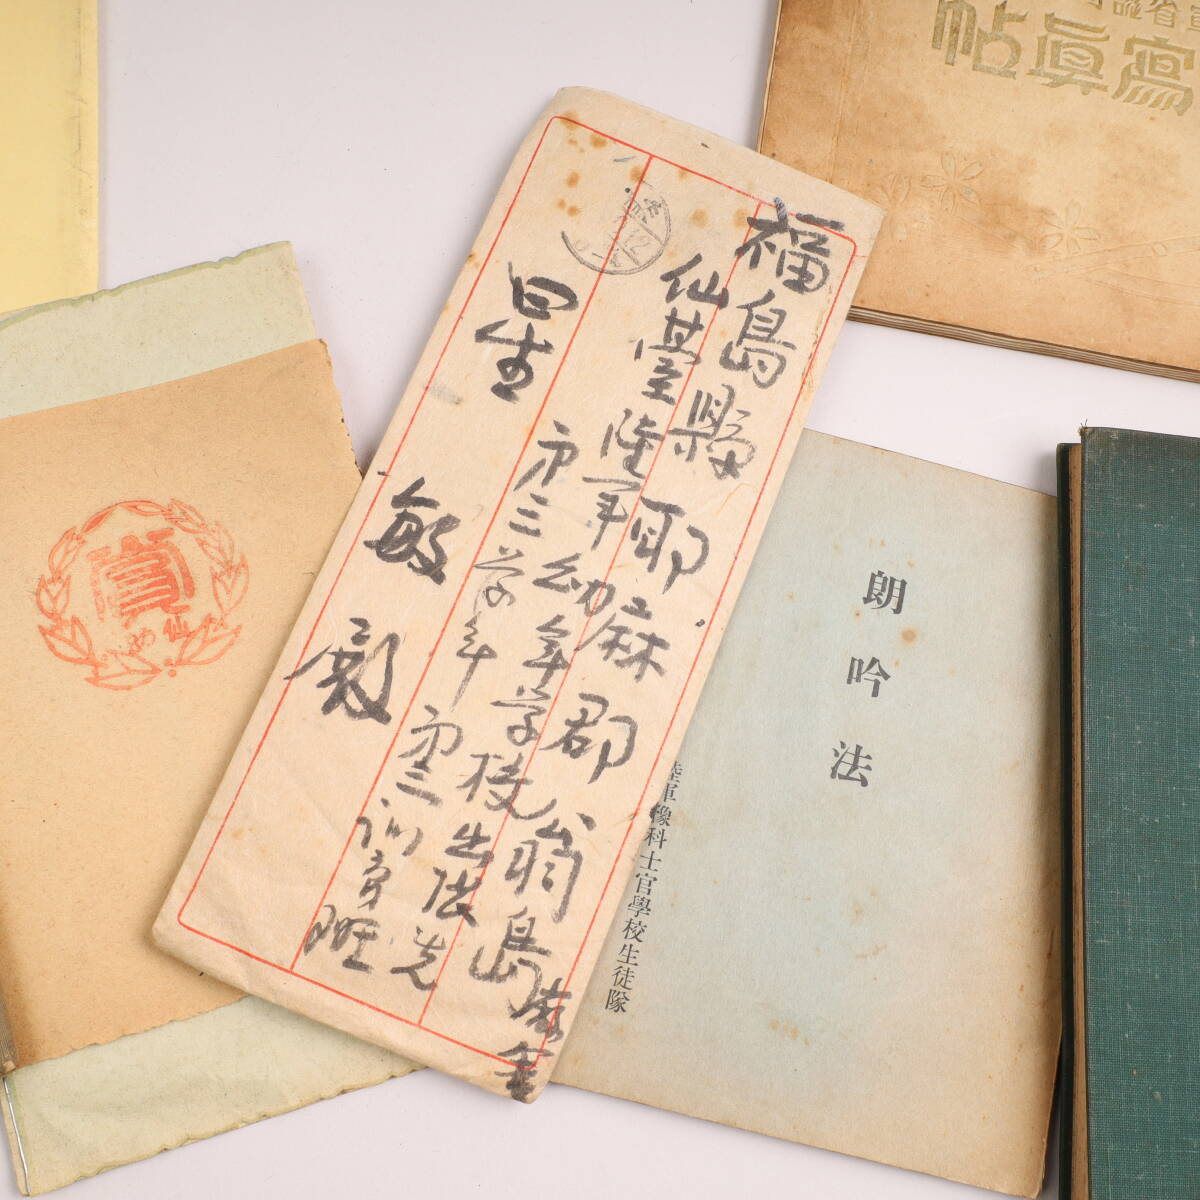 寫眞帖
福島縣耶麻郡翁島
仙臺陸軍幼年学校出張先
第三学年第三訓育班
星 敏 殿
賞
朗吟法
陸軍豫科士官學校生徒隊